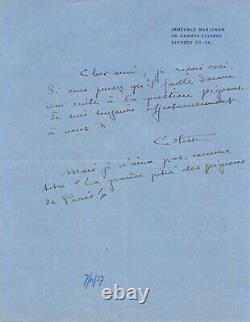 IMMEUBLE MARIGNAN
CHAMPS-ELYSÉES
Cher ami, je reçois ceci.
Si vous pensez qu'il faille donner
une suite à la question pigeons,
je suis toujours affectueusement
à vous
Colette
Mais je n'aime pas, comme
titre "La grande pitié des pigeons
de Paris"